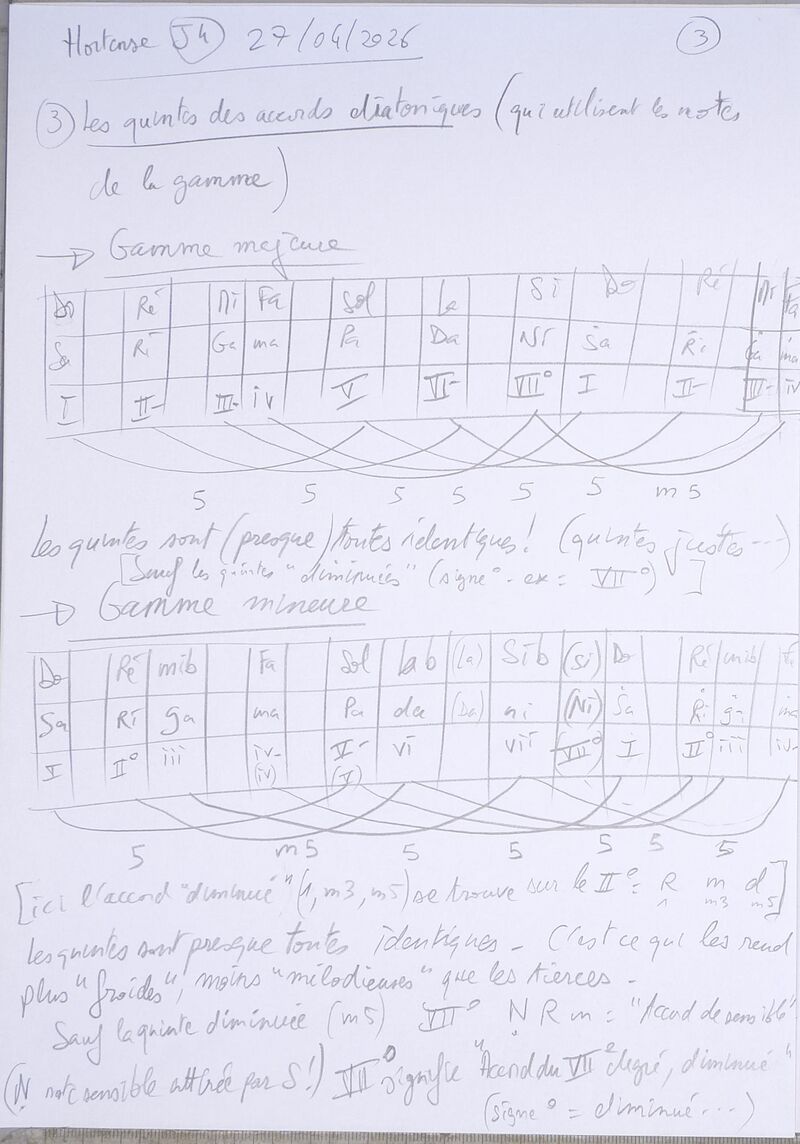 Hortense J4 27/04/2026 3
3 Les quintes des accords diatoniques (qui utilisent les notes
de la gamme)
→ Gamme majeure
Do Ré Mi Fa Sol La Si Do Ré Mi Fa
Sa Ri Ga ma Pa Da Ni Ṡa Ṙi Ġa ma
I II- III- iv V VI- VII° I II- III- iv
5 5 5 5 5 5 m5
Les quintes sont (presque) toutes identiques! (quintes justes...)
[Sauf les quintes "diminuées" (signe° - ex = VII°)]
→ Gamme mineure
Do Ré mib Fa Sol lab (la) Sib (Si) Do Ré mib Fa
Sa Ri ga ma Pa da (Da) ni (Ni) Ṡa Ṙi ġa ma
I II° iii iv- V- vi vii (VII°) I II° iii iv-
(iv) (V)
5 m5 5 5 5 5 5
[ici l'accord "diminué" (1, m3, m5) se trouve sur le II° = R m d]
1 m3 m5
Les quintes sont presque toutes identiques - C'est ce qui les rend
plus "froides", moins "mélodieuses" que les tierces -
Sauf la quinte diminuée (m5) VII° N R m = "Accord de sensible"
(N note sensible attirée par S!) VII° signifie "Accord du VII° degré, diminué"
(signe ° = diminué...)